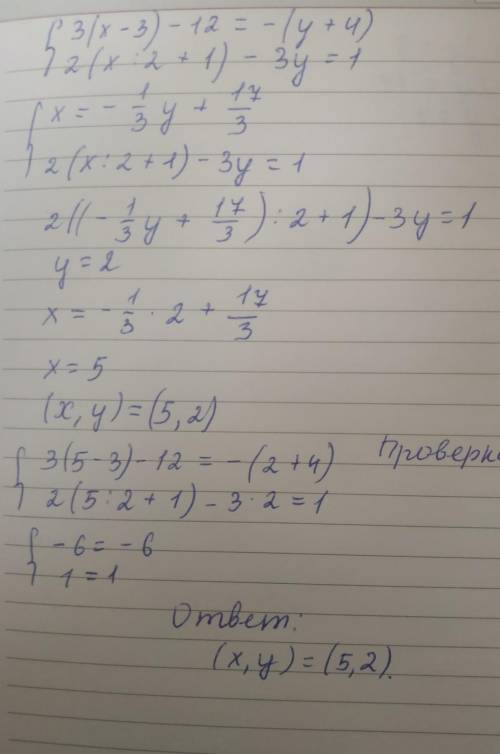 3(x-3)-12 = -(y+4)
2(x:2+1)-3y=1
x = -1/3 y + 17/3
2(x:2+1)-3y=1
2((-1/3 y + 17/3):2+1)-3y=1
y=2
x = -1/3 · 2 + 17/3
x=5
(x,y)=(5,2)
3(5-3)-12 = -(2+4) Проверка
2(5:2+1)-3·2=1
-6=-6
1=1
Ответ:
(x,y)=(5,2).